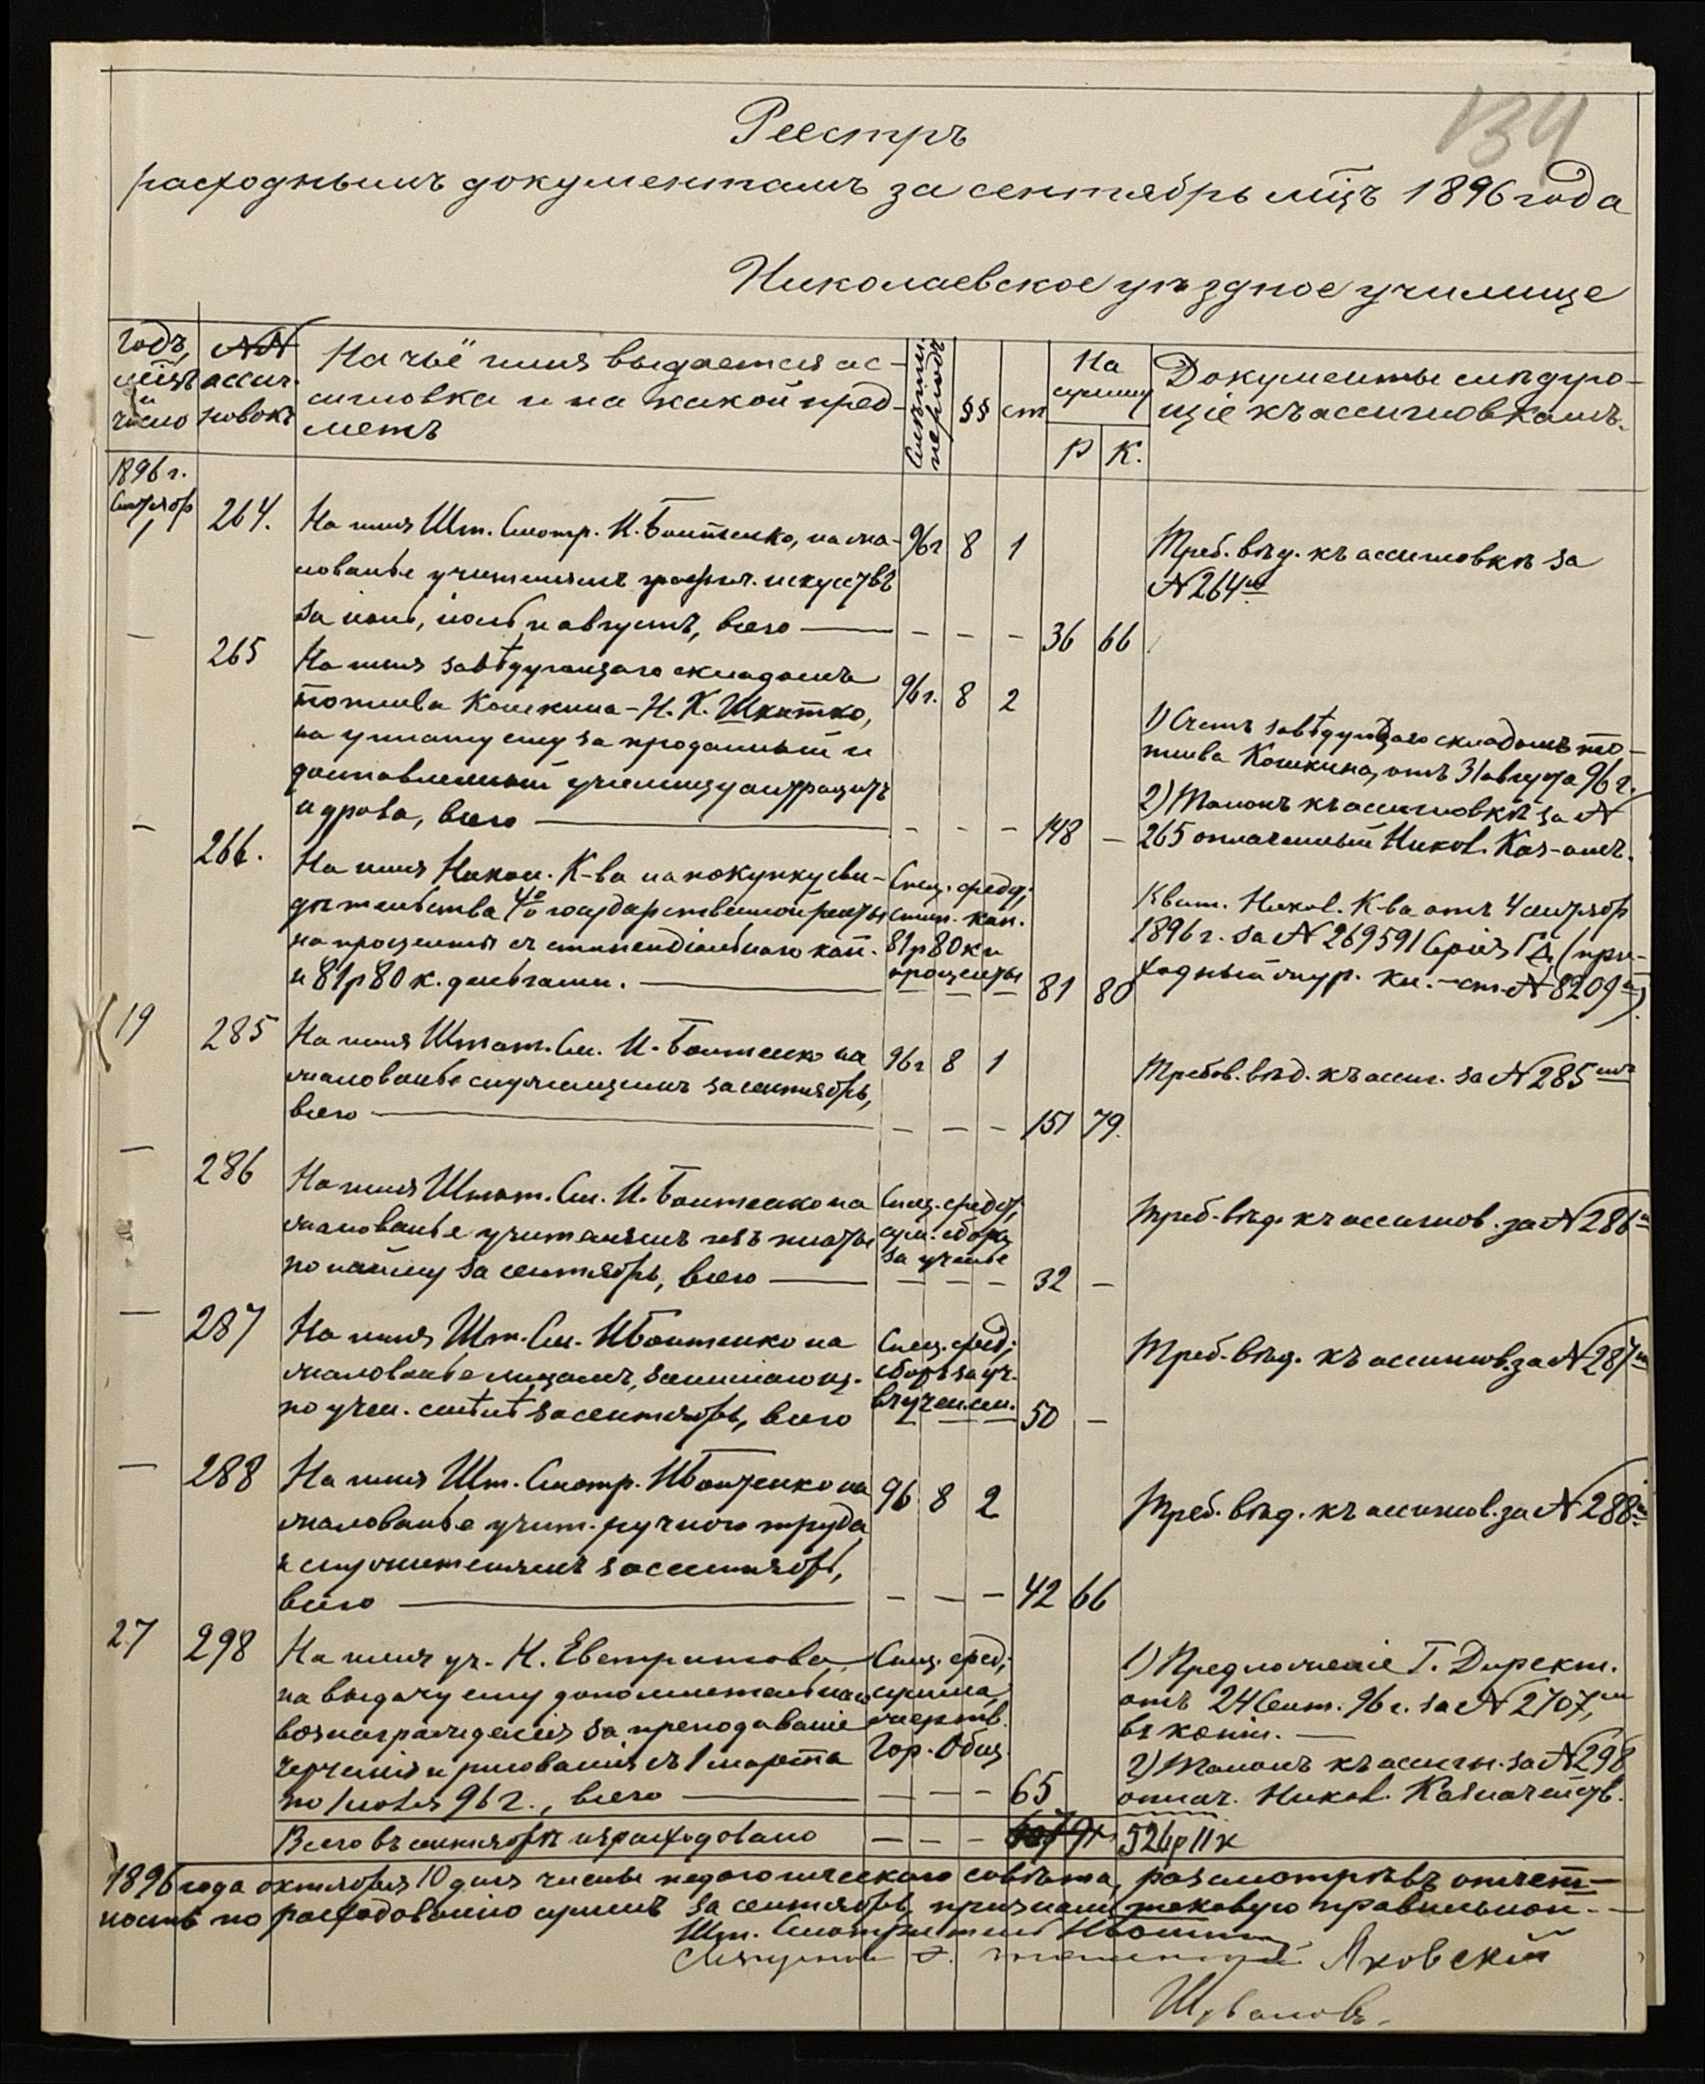 134
Реестръ
расходнымъ документамъ за сентябрь мцъ 1896 года
Николаевское уѣздное училище
Годъ, мцъ и число
№№ ассигновокъ
На чьё имя выдается ас-
сигновка и на какой пред-
метъ
Смѣтн. періодъ
§§
ст
На сумму
Р К.
Документы слѣдую-
щіе къ ассигновкамъ.
1896 г.
Сентябр
1
264.
На имя Шт. Смотр. И. Бойтенко, на жа-
лованье учителямъ графич. искусствъ
за іюнь, іюль и августъ, всего —
96г 8 1
— — — 36 66
Треб. вѣд. къ ассигновкѣ за
№ 264й
—
265
На имя завѣдующаго складомъ
топлива Кошкина - Н. К. Шкитко,
на уплату ему за проданный и
доставленный училищу антрацитъ
и дрова, всего —
96г. 8 2
— — — 148 —
1) Счетъ завѣдующаго складомъ то-
плива Кошкина, отъ 31 августа 96 г.
2) Талонъ къ ассигновкѣ за №
265 оплаченный Никол. Каз-омъ.
—
266.
На имя Никол. К-ва на покупку сви-
дѣтельства 4% государственной ренты
на проценты съ стипендіальнаго кап.
и 81р 80 к. деньгами. —
Спец. средст,
стип. кап.
81р 80 к и
проценты
— — 81 80
Квит. Никол. К-ва отъ 4 сентября
1896 г. за № 269591 Серія (при-
ходный жур. кн. — ст. № 8209й).
19
285
На имя Штат. См. И. Бойтенко на
жалованье служащимъ за сентябрь,
всего —
96г 8 1
— — — 151 79.
Требов. вѣд. къ ассиг. за № 285мъ
—
286
На имя Штат. См. И. Бойтенко на
жалованье учителямъ изъ платы
по найму за сентябрь, всего —
Спец. средст,
сум. сбора
за ученье
— — — 32 —
Треб. вѣд. къ ассигнов. за № 286й
—
287
На имя Шт. См. И Бойтенко на
жалованье лицамъ, занимающ.
по учен. смѣтѣ за сентябрь, всего
Спец. сред;
сборъ за уч.
въ учен. см.
— — — 50 —
Треб. вѣд. къ ассигнов. за № 287й
—
288
На имя Шт. Смотр. И Бойтенко на
жалованье учит. ручного труда
и служителямъ за сентябрь,
всего —
96 8 2
— — — 42 66
Треб. вѣд. къ ассигнов. за № 288й
27
298
На имя уч. Н. Евстратова,
на выдачу ему дополнительнаго
вознагражденія за преподаваніе
черченія и рисованія съ 1 марта
по 1 юля 96 г., всего —
Спец. сред;
сумма,
жертв.
Гор. Общ.
— — — 65
1) Предложеніе Г. Директ.
отъ 24 Сент. 96 г. за № 2707,
въ копіи. —
2) Талонъ къ ассигн. за № 298
оплач. Никол. Казначейств.
Всего въ сентябрѣ израсходовано — — — 526р 11к
1896 года октября 10 дня члены педагогическаго совѣта, разсмотрѣвъ отчет-
ность по расходованію суммъ за сентябрь, признали таковую правильной. —
Шт. Смотритель И Бойт
Яковскій
Шуваловъ.